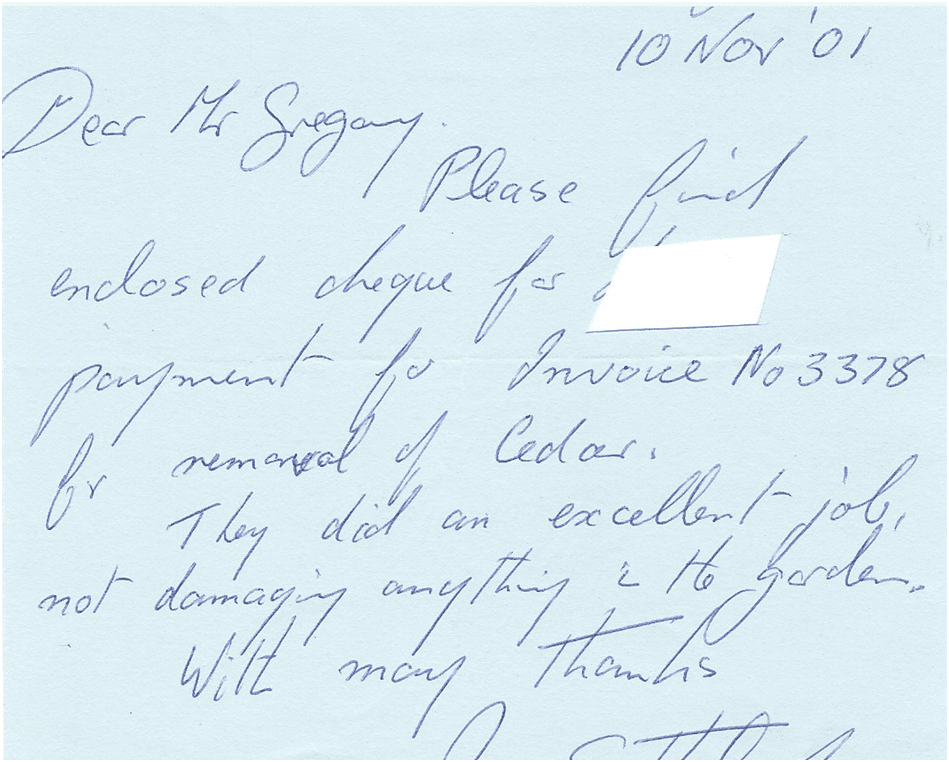 10 Nov '01
Dear Mr Gregory.
Please find
enclosed cheque for
payment for Invoice No 3378
for removal of Cedar.
They did an excellent job,
not damaging anything in the garden.
With many thanks